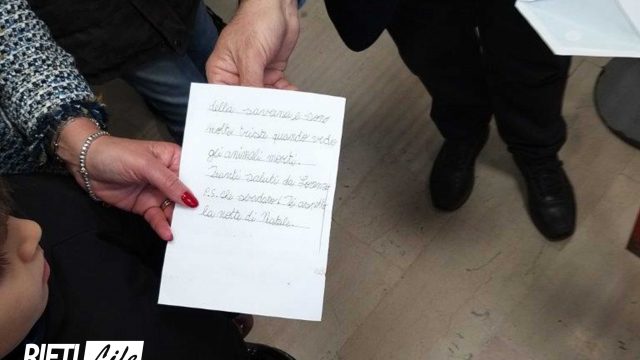 della savana e sono
molto triste quando vedo
gli animali morti.
Tanti saluti da Lorenzo
P.S. Ti aspetto
la notte di Natale.
RIETI Life